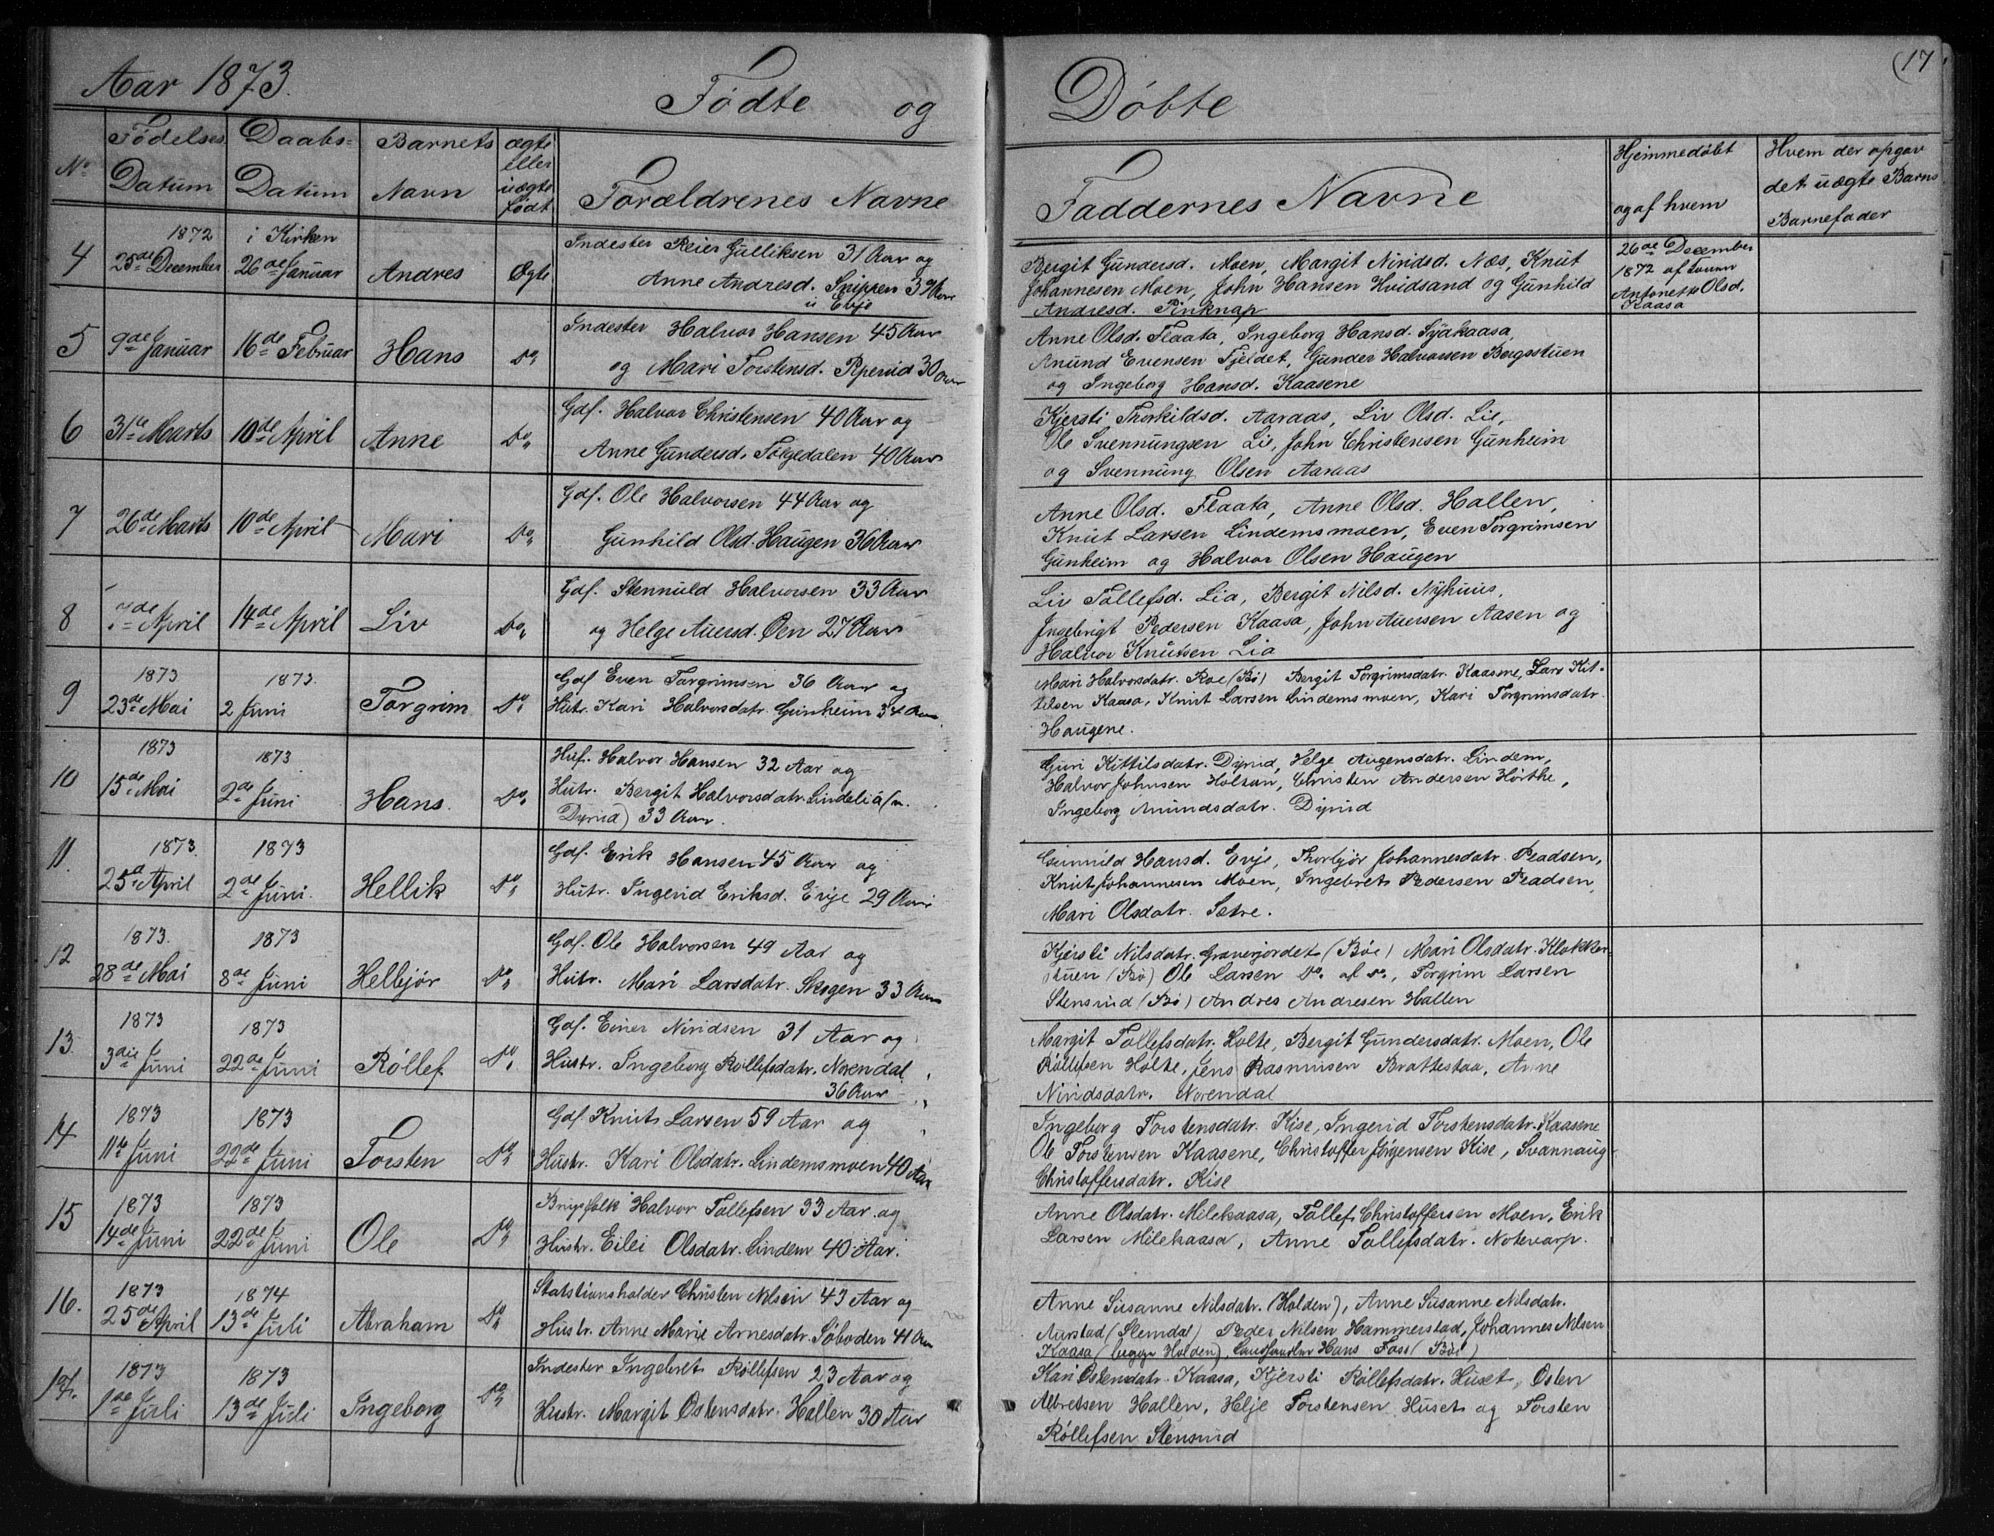 Aar 1873. Födte og Döbte (17
No. Födelses Datum Daabs- Datum Barnets Navn ægte eller uægte födt Forældrenes Navne Faddernes Navne Hjemmedöbt og af hvem Hvem der opgav det uægte Barns Barnefader
4 1872 25de December i Kirken 26de Januar Andres Ægte
Indester Reier Gulliksen 31 Aar og
Anne Andresd. Snippen 39 Aar
i Evje
Bergit Gundersd. Moen, Margit Niridsd. Næs, Knut
Johannesen Moen, John Hansen Hvidsand og Gunhild
Andresd. Rinknap
26de December
1872 af
Antonette Olsd.
Kaasa
5 9de Januar 16de Februar Hans Do.
Indester Halvor Hansen 45 Aar
og Mari Torstensd. Ryerud 30 Aar
Anne Olsd. Flaata, Ingeborg Hansd. Syakaasa,
Anund Evensen Fjeldet, Gunder Halvorsen Bergstuen
og Ingeborg Hansd. Kaasene
6 31te Marts 10de April Anne Do.
Gdf. Halvor Christensen 40 Aar og
Anne Gundersd. Folgedalen 40 Aar
Kjersti Thorkildsd. Aaraas, Liv Olsd. Lie,
Ole Svennungsen Lie, John Christensen Gunheim
og Svennung Olsen Aaraas
7 26de Marts 10de April Mari Do.
Gdf. Ole Halvorsen 44 Aar og
Gunhild Olsd. Haugen 36 Aar
Anne Olsd. Flaata, Anne Olsd. Hallen,
Knut Larsen Lindemsmoen, Even Torgrimsen
Gunheim og Halvor Olsen Haugen
8 7de April 14de April Liv Do.
Gdf. Stennuld Halvorsen 33 Aar
og Helge Auersd. Öen 27 Aar
Liv Tollefsd. Lia, Bergit Nilsd. Nyhuus,
Ingebrigt Pedersen Kaasa, John Auersen Aasen og
Halvor Knutsen Lia
9 1873 23de Mai 1873. 2 Juni Torgrim Do.
Gdf Even Torgrimsen 36 Aar og
Hutr. Kari Halvorsdatr. Gunheim 34 Aar
Mari Halvorsdatr. Roe (Bö) Bergit Torgrimsdatr. Kaasene, Lars Kit-
tilsen Kaasa, Knut Larsen Lindemsmoen, Kari Torgrimsdatr.
Haugene.
10 1873 15de Mai 1873 2de Juni Hans. Do.
Huf. Halvor Hansen 32 Aar og
Hutr. Bergit Halvorsdatr. Lindelia (n.
Dyrud) 33 Aar.
Guri Kittilsdatr. Dyrud, Helge Augensdatr. Lindem,
Halvor Johnsen Holtan, Christen Andersen Hörthe,
Ingeborg Anundsdatr. Dyrud
11. 1873. 25de April 1873 2de Juni. Hellik Do.
Gdf. Erik Hansen 45 Aar og
Hutr. Ingerid Eriksd. Evje 29 Aar
Gunnild Hansd. Evje, Thorbjör Johannesdatr. Pladsen,
Knut Johannesen Moen, Ingebret Pedersen Pladsen,
Mari Olsdatr. Sætre.
12 1873. 28de Mai 1873 8de Juni Helbjör Do.
Gdf. Ole Halvorsen 49 Aar og
Hutr. Mari Larsdatr. Skogen 33 Aar
Kjersti Nilsdatr. Gravergjordet (Böe) Mari Olsdatr. Klokker-
stuen (Bö) Ole Larsen do. af do., Torgrim Larsen
Stensrud (Bö) Andres Andresen Hallen
13. 1873 3die Juni 1873 22de Juni Röllef Do.
Gdf. Einer Niridsen 31 Aar og
Hustr. Ingeborg Röllefsdatr. Norendal
36 Aar
Margit Tollefsdatr. Holte, Bergit Gundersdatr. Moen, Ole
Röllefsen Holte, Jens Rasmusen Brattestaa, Anne
Niridsdatr. Norendal
14 1873 11te Juni 1873 22de Juni Torsten Do.
Gdf. Knut Larsen 59 Aar og
Hustr. Kari Olsdatr. Lindemsmoen 40 Aar
Ingeborg Torstensdatr. Kise, Ingerid Torstensdatr. Kaasene
Ole Torstensen Kaasene, Christoffer Jörgensen Kise, Svannaug
Christoffersdatr. Kise
15 1873 14de Juni 1873 22de Juni Ole Do.
Brugsfolk Halvor Tollefsen 33 Aar og
Hustr. Eilei Olsdatr. Lindem 40 Aar.
Anne Olsdatr. Milekaasa, Tollef Christoffersen Moen, Erik
Larsen Milekaasa, Anne Tollefsdatr. Notevarp.
16. 1873 25de April 1874 13de Juli Abraham Do.
Statstionsholder Christen Nilsen 43 Aar og
Hustr. Anne Marie Arnesdatr. Söboden 41 Aar
Anne Susanne Nilsdatr. (Holden), Anne Susanne Nilsdatr.
Aurstad (Slemdal) Peder Nilsen Hammerstad, Johannes Nilsen
Kaasa (begge Holden), Landhandler Hans Foss (Böe)
17. 1873 1de Juli 1873 13de Juli Ingeborg Do.
Indester Ingebret Röllefsen 23 Aar og
Hustr. Margit Östensdatr. Hallen 30 Aar
Kari Östensdatr. Kaasa, Kjersti Röllefsdatr. Huset, Östen
Albretsen Hallen, Helje Torstensen Huset og Torsten
Röllefsen Stensrud